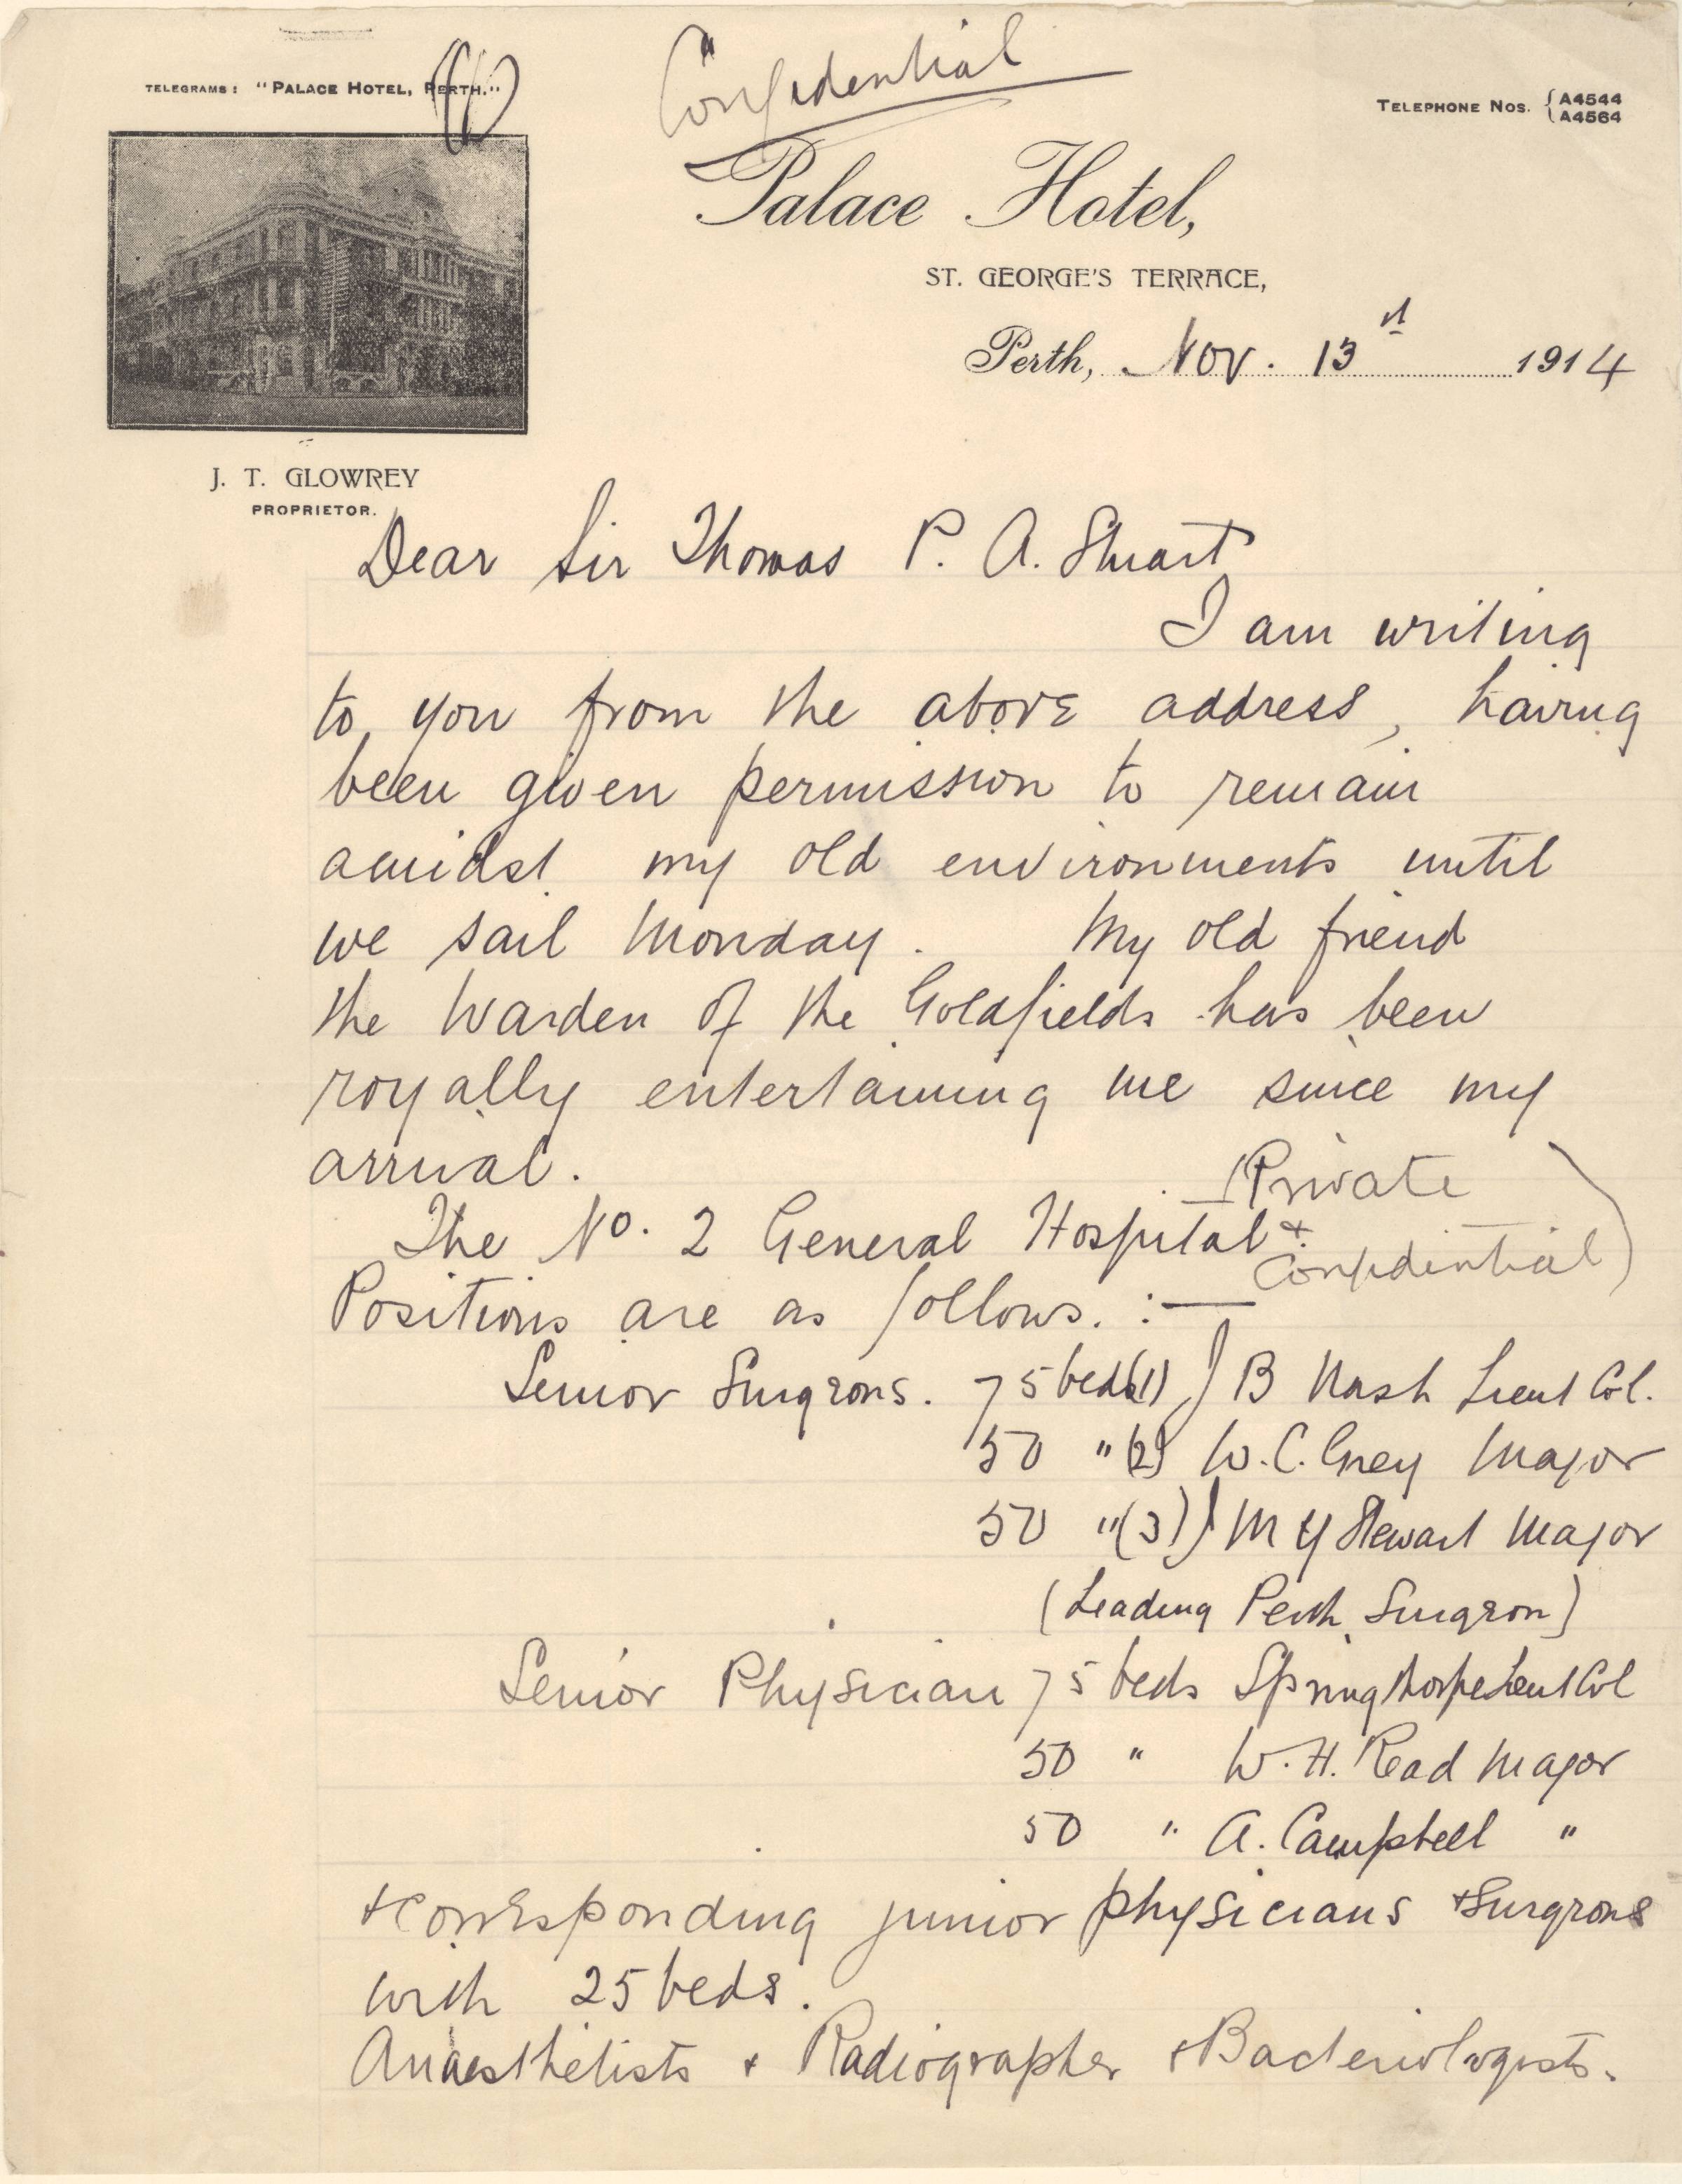 (1)
Confidential
TELEGRAMS: "PALACE HOTEL, PERTH."
TELEPHONE NOS. { A4544
A4564
Palace Hotel,
ST. GEORGE'S TERRACE,
Perth, Nov. 13 1914
J. T. GLOWREY
PROPRIETOR.
Dear Sir Thomas P. A. Stuart
I am writing
to you from the above address, having
been given permission to remain
amidst my old environments until
we sail Monday. My old friend
the Warden of the Goldfields has been
royally entertaining me since my
arrival.
(Private
The No. 2 General Hospital &
Confidential)
Positions are as follows. :—
Senior Surgeons. 75 beds (1) J B Nash Lieut Col.
50 " (2) W. C. Grey Major
50 " (3) J M Y Stewart Major
(Leading Perth Surgeon)
Senior Physician 75 beds Springthorpe Lieut Col
50 " W. H. Read Major
50 " A. Campbell "
& corresponding junior physicians & Surgeons
with 25 beds.
Anaesthetists & Radiographer & Bacteriologists.